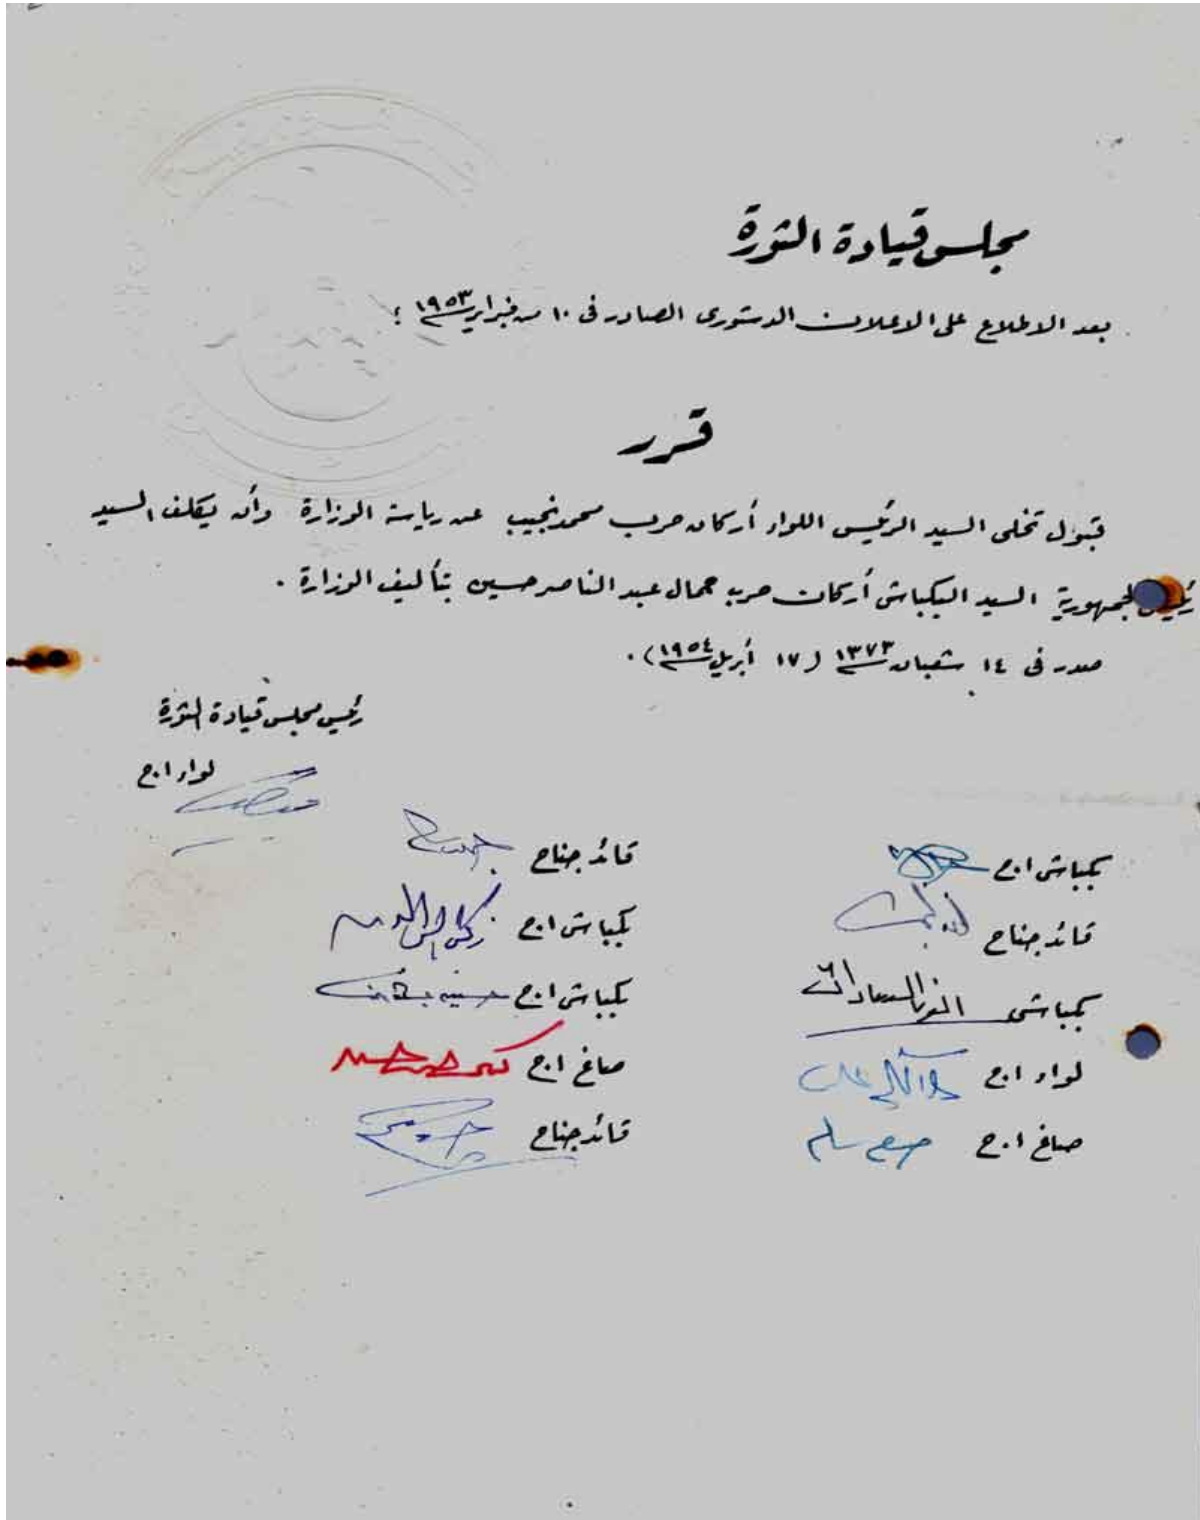 مجلس قيادة الثورة
بعد الاطلاع على الاعلان الدستورى الصادر فى ١٠ من فبراير ١٩٥٣ ؛
قرر
قبول تخلى السيد الرئيس اللواء أركان حرب محمد نجيب عن رياسة الوزارة وأن يكلف السيد
رئيس الجمهورية السيد البكباشى أركان حرب جمال عبد الناصر حسين بتأليف الوزارة .
صدر فى ١٤ شعبان ١٣٧٣ (١٧ أبريل ١٩٥٤) .
رئيس مجلس قيادة الثورة
لواء ا.ح
بكباشى ا.ح
قائد جناح
قائد جناح
بكباشى ا.ح زكريا محيى الدين
بكباشى انور السادات
بكباشى ا.ح
لواء ا.ح
صاغ ا.ح
صاغ ا.ح صلاح سالم
قائد جناح